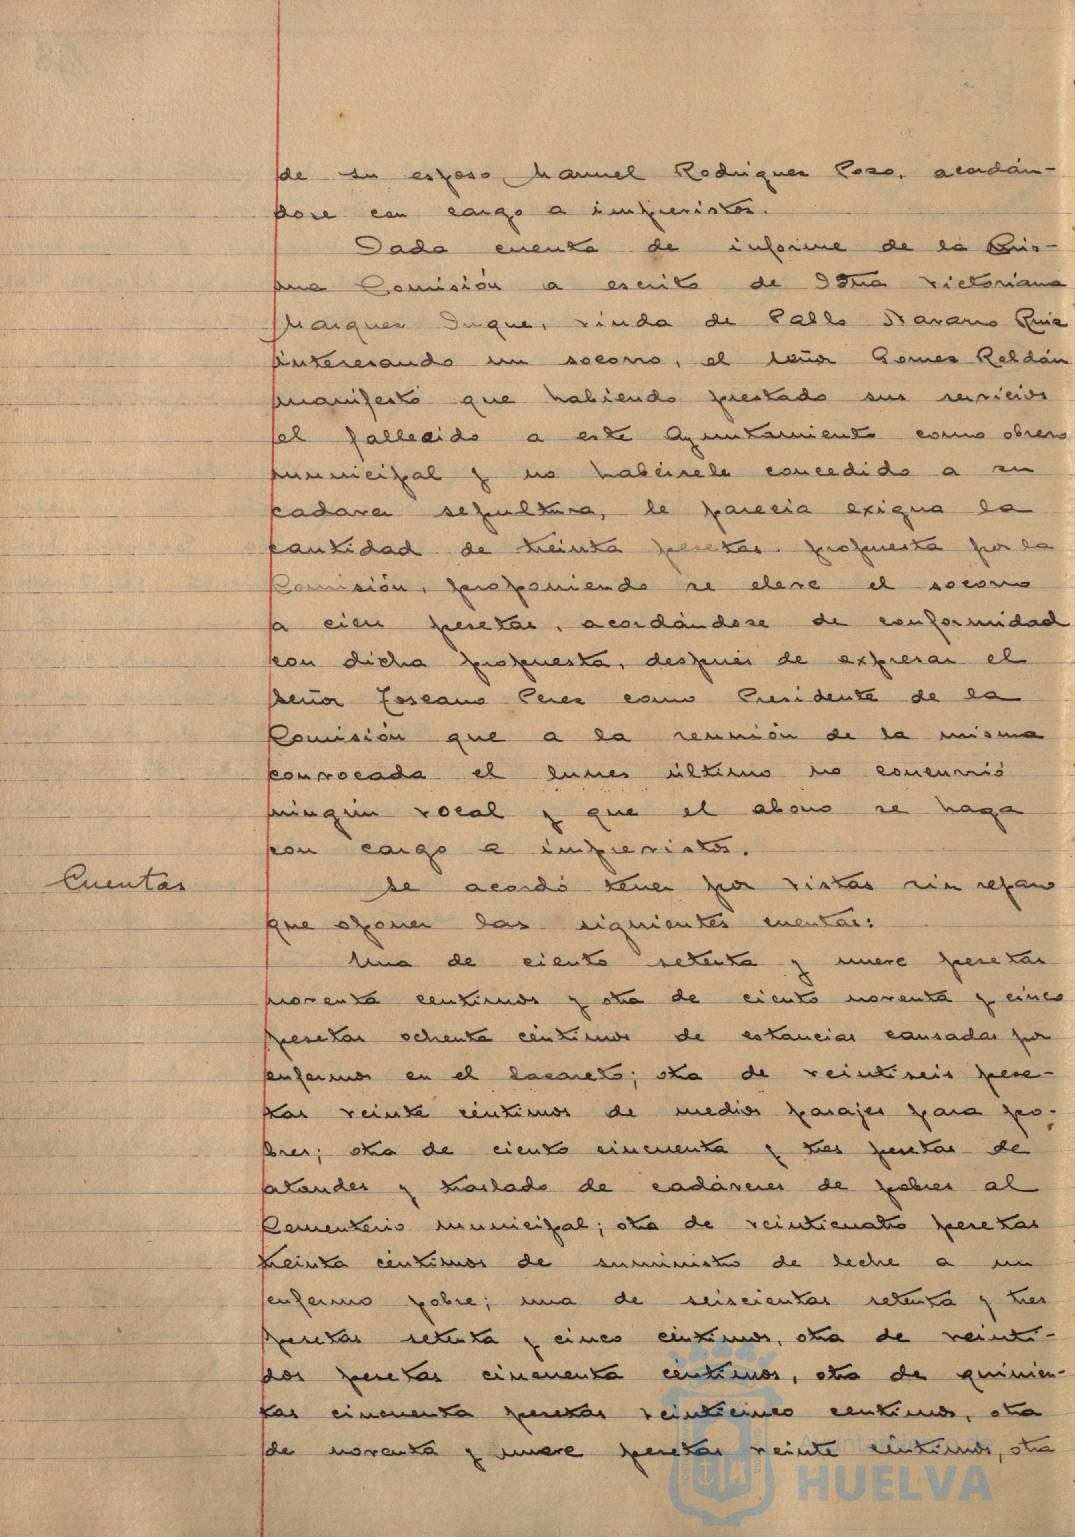 de su esposo Manuel Rodriguez Pozo, acordán-
dose con cargo a imprevistos.
Dada cuenta de informe de la mis-
ma Comisión a escrito de Doña Victoriana
Marquez Duque, viuda de Pablo Navarro Ruiz
interesando un socorro, el señor Gomez Roldán
manifestó que habiendo prestado sus servicios
el fallecido a este Ayuntamiento como obrero
municipal y no habérsele concedido a su
cadaver sepultura, le parecia exigua la
cantidad de treinta pesetas propuesta por la
Comisión, proponiendo se eleve el socorro
a cien pesetas, acordándose de conformidad
con dicha propuesta, después de expresar el
señor Toscano Perez como Presidente de la
Comisión que a la reunión de la misma
convocada el lunes último no concurrió
ningún vocal y que el abono se haga
con cargo a imprevistos.
Cuentas
Se acordó tener por vistas sin reparo
que oponer las siguientes cuentas:
Una de ciento setenta y nueve pesetas
noventa centimos y otra de ciento noventa y cinco
pesetas ochenta céntimos de estancias causadas por
enfermos en el Lazareto; otra de veintiseis pese-
tas veinte céntimos de medios pasajes para po-
bres; otra de ciento cincuenta y tres pesetas de
ataudes y traslado de cadáveres de pobres al
Cementerio municipal; otra de veinticuatro pesetas
treinta céntimos de suministro de leche a un
enfermo pobre; una de seiscientas setenta y tres
pesetas setenta y cinco céntimos, otra de veinti-
dos pesetas cincuenta céntimos, otra de quinien-
tas cincuenta pesetas veinticinco centimos, otra
de noventa y nueve pesetas veinte céntimos, otra
Ayuntamiento de
HUELVA